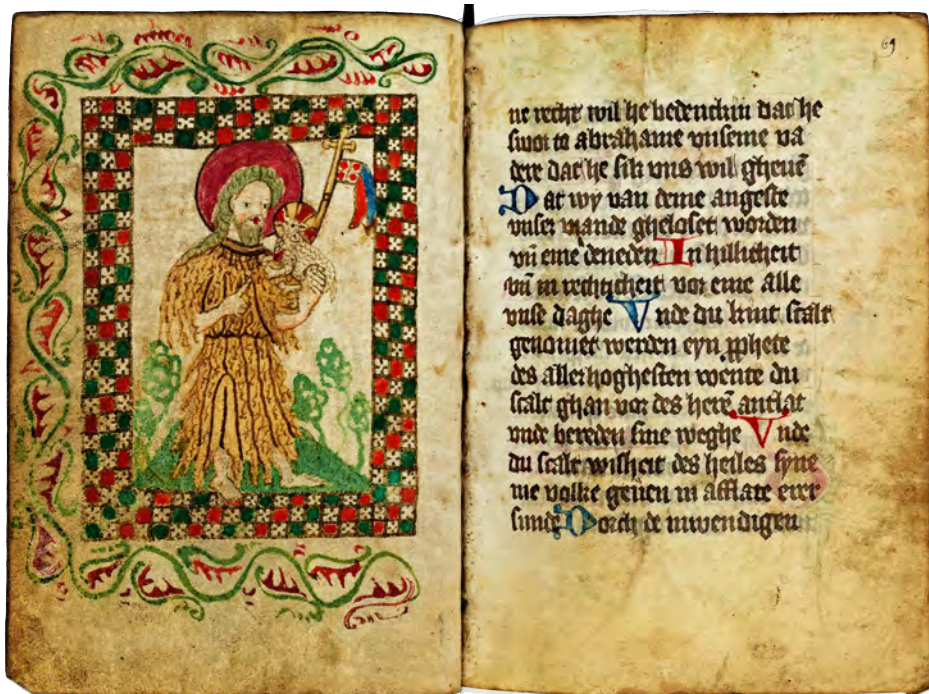 69
ne recht wil he bedenckin dat he
swor to abrahame vnseme va
dere dat he sik vns wil gheuē
Dat wy van deme angeste
vnser viande gheloset worden
vn̄ eme deneden In hillicheit
vn̄ in rechticheit vor eme alle
vnse daghe Vnde du kint scalt
genomet werden eyn ꝓphete
des allerhoghesten wente du
scalt ghan vor des herē antlat
vnde bereden sine weghe Vnde
du scalt wisheit des heiles syne
me volke geuen in afflate erer
sunde Dorch de inwendigen